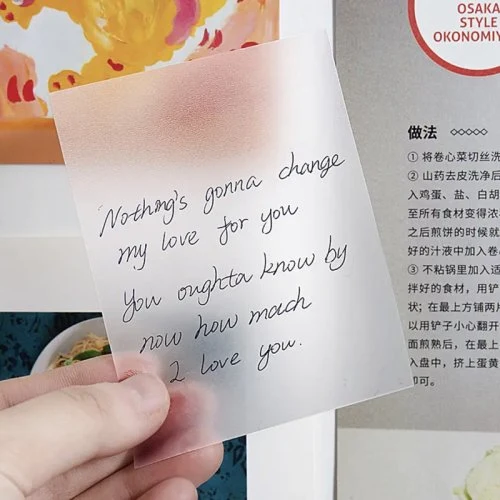 OSAKA
STYLE
OKONOMIY
做法
① 将卷心菜切丝洗
② 山药去皮洗净后
入鸡蛋、盐、白胡
至所有食材变得浓
之后煎饼的时候就
好的汁液中加入卷
③ 不粘锅里加入适
拌好的食材，用铲
状；在最上方铺两片
以用铲子小心翻开
面煎熟后，在最上
入盘中，挤上蛋黄
即可。
Nothing's gonna change
my love for you
You oughta know by
now how much
I love you.